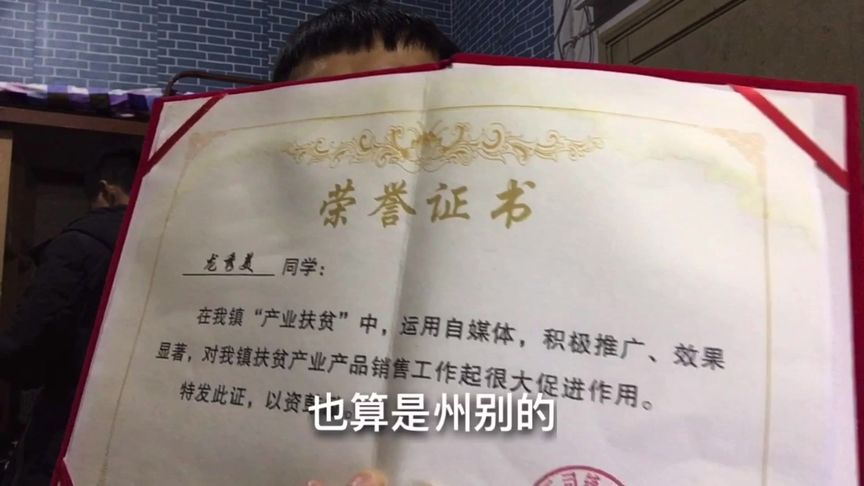 荣誉证书
龙秀美 同学：
在我镇“产业扶贫”中，运用自媒体，积极推广、效果
显著，对我镇扶贫产业产品销售工作起很大促进作用。
特发此证，以资
也算是州别的